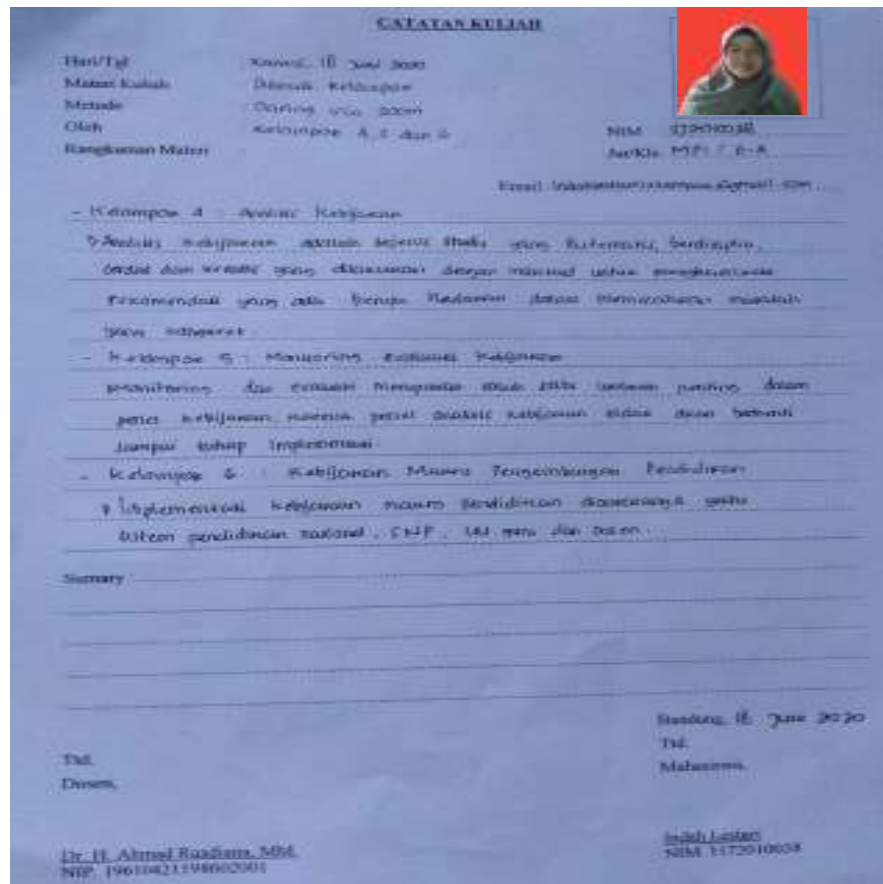 CATATAN KULIAH
Hari/Tgl Kamis, 18 Juni 2020
Materi Kuliah Diskusi Kelompok
Metode Daring via zoom
Oleh Kelompok 4, 5 dan 6
NIM
Rangkuman Materi
Jur/Kls MPI / 6-A
Email
- Kelompok 4 : Analisis Kebijakan
Analisis kebijakan adalah sejenis studi yang sistematis, berdisiplin,
cerdas dan kreatif yang dilakukan dengan maksud untuk menghasilkan
rekomendasi yang berupa dalam memecahkan masalah
yang
- Kelompok 5 : Monitoring evaluasi kebijakan
Monitoring dan evaluasi merupakan salah satu penting dalam
kebijakan, karena analisis kebijakan tidak akan berhenti
sampai tahap implementasi.
- Kelompok 6 : Kebijakan Pengembangan Pendidikan
Implementasi kebijakan pendidikan yaitu
sistem pendidikan nasional, SNP, UU guru dan dosen.
Sumary
Bandung, 18 Juni 2020
Ttd.
Mahasiswa,
Ttd.
Dosen,
Indah Lestari
NIM. 1172010038
Dr. H. Ahmad Rusdiana, MM.
NIP. 196104211986021001